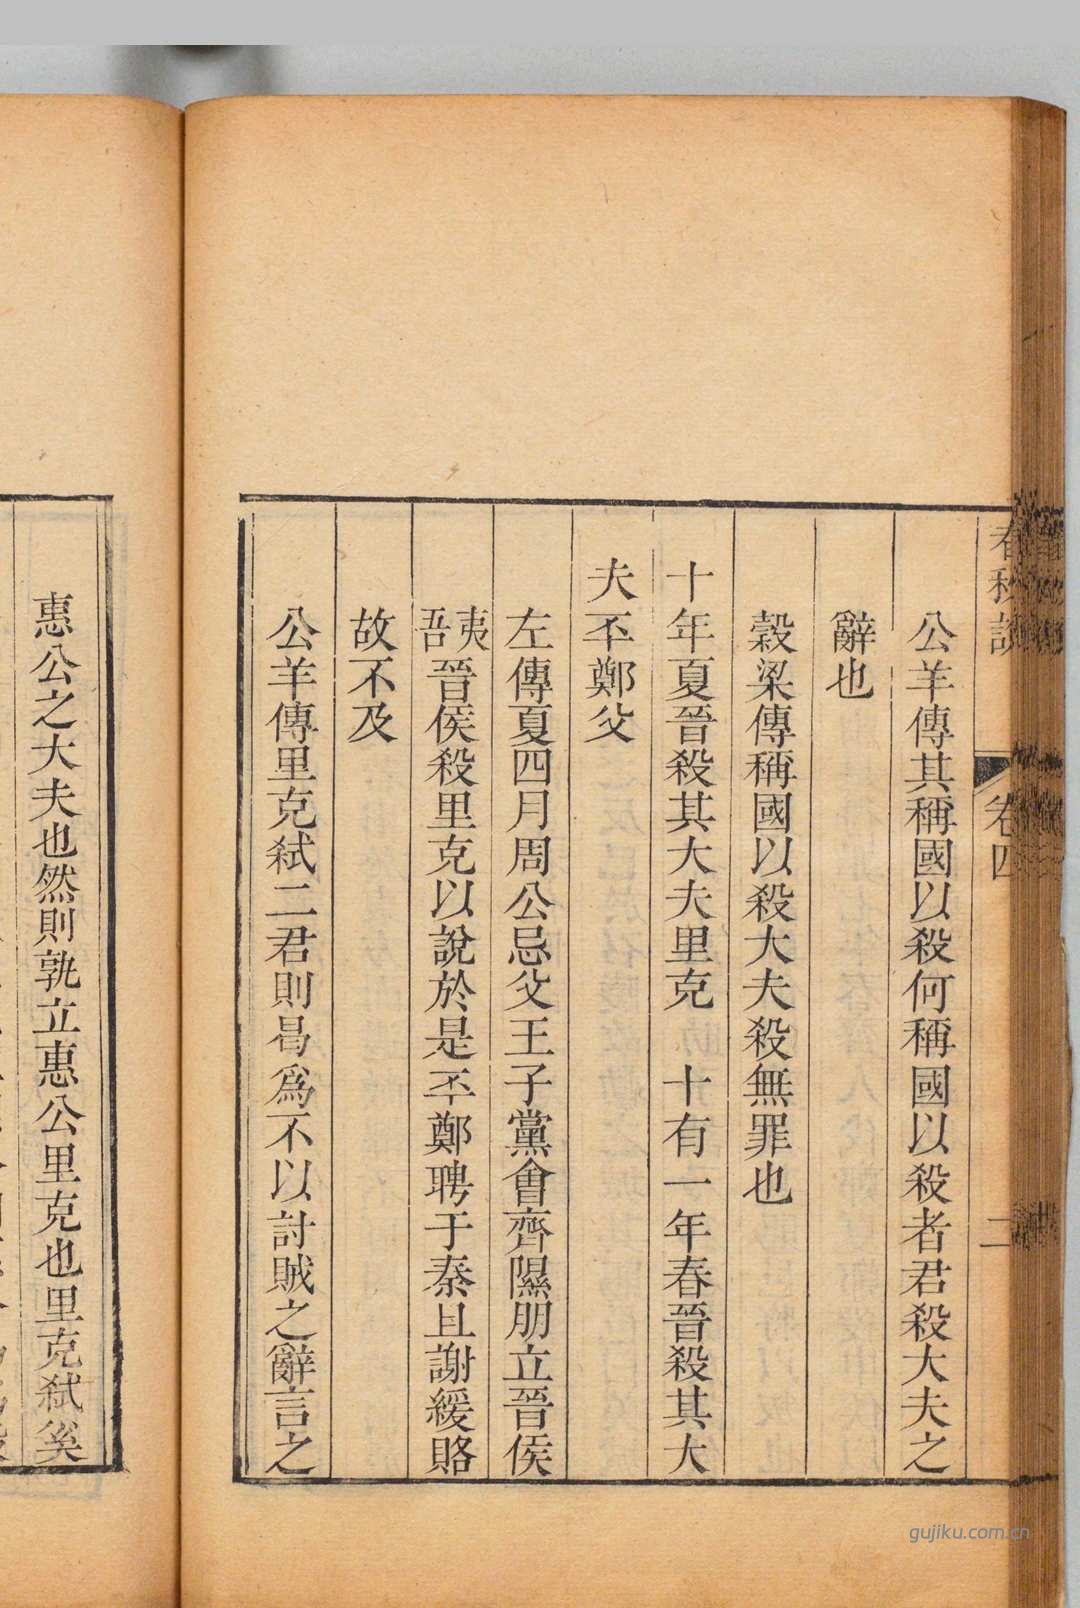 春秋說
卷四
二
公羊傳其稱國以殺何稱國以殺者君殺大夫之
辭也
穀梁傳稱國以殺大夫殺無罪也
十年夏晉殺其大夫里克　十有一年春晉殺其大
夫㔻鄭父
左傳夏四月周公忌父王子黨會齊隰朋立晉侯
夷吾晉侯殺里克以說於是㔻鄭聘于秦且謝緩賂
故不及
公羊傳里克弒二君則曷為不以討賊之辭言之
惠公之大夫也然則孰立惠公里克也里克弒奚
gujiku.com.cn